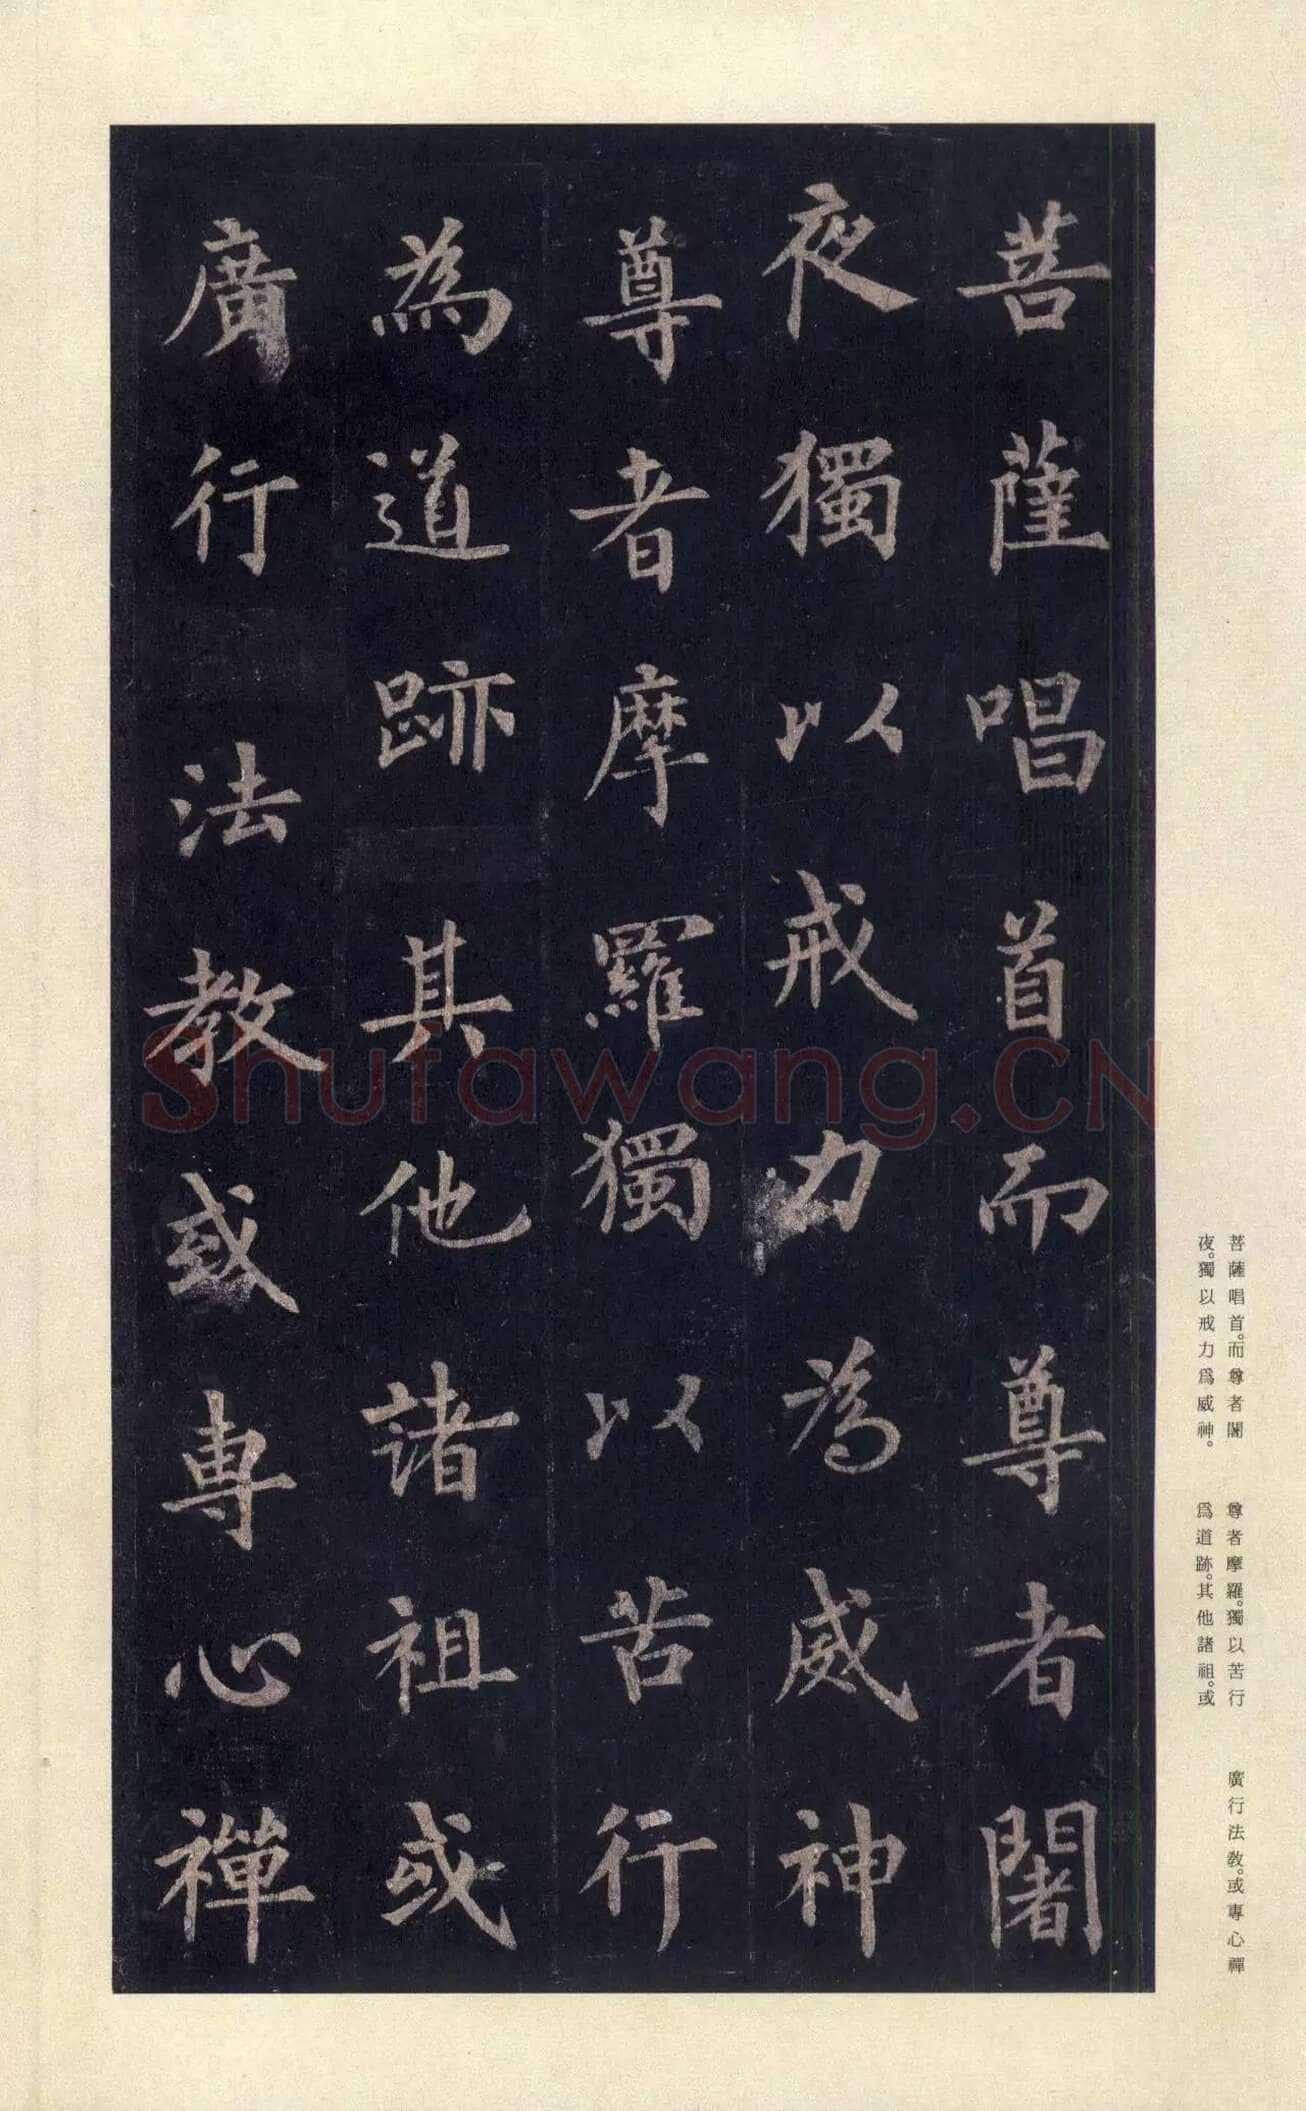 菩薩唱首而尊者闍
夜獨以戒力為威神
尊者摩羅獨以苦行
為道跡其他諸祖或
廣行法教或專心禪
菩薩唱首。而尊者闍
夜。獨以戒力爲威神。
尊者摩羅。獨以苦行
爲道跡。其他諸祖。或
廣行法教。或專心禪
Shufawang.CN